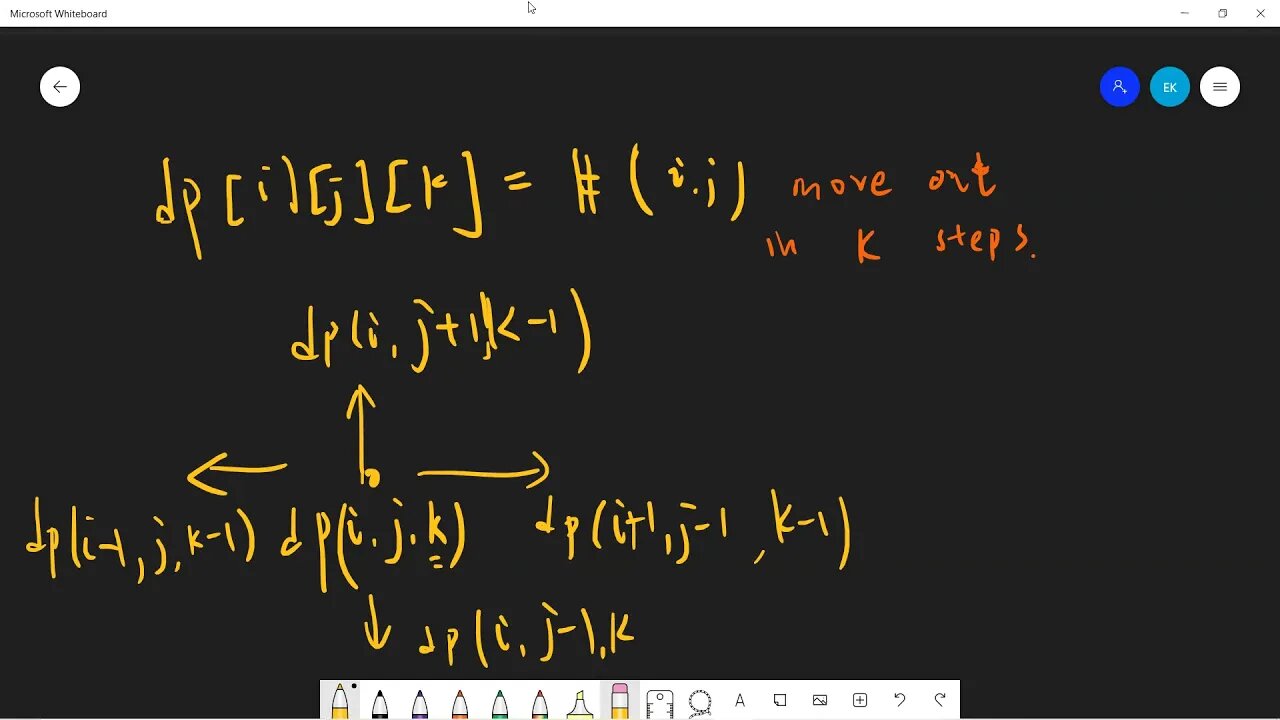 Microsoft Whiteboard
EK
dp[i][j][k] = # (i.j) move out
in k steps.
dp(i, j+1,k-1)
dp(i-1, j, k-1) dp(i, j, k) dp(i+1, j-1, k-1)
dp(i, j-1, k
A